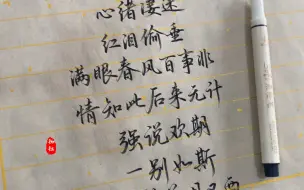 心绪凄迷
红泪偷垂
满眼春风百事非
情知此后来无计
强说欢期
一别如斯